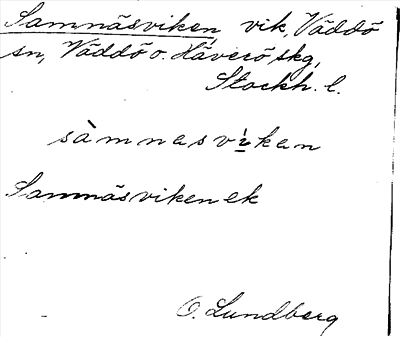 Samnäsviken, vik, Väddö
sn, Väddö o. Häverö skg,
Stockh. l.
sàmnasvi̊kan
Samnäsviken ek
O. Lundberg